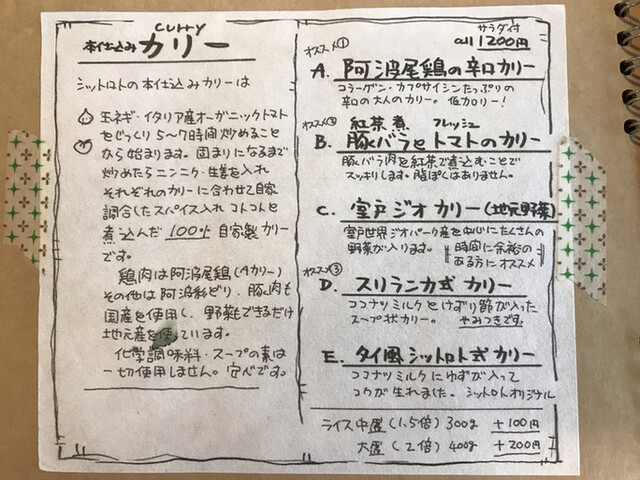 curry
本仕込み カリー
シットロトの本仕込みカリーは
玉ネギ・イタリア産オーガニックトマト
をじっくり5〜7時間炒めること
から始まります。固まりになるまで
炒めたらニンニク・生姜を入れ
それぞれのカリーに合わせて自家
調合したスパイス入れコトコトと
煮込んだ100%自家製カリー
です。
鶏肉は阿波尾鶏(Aカリー)
その他は阿波彩どり、豚肉も
国産を使用し、野菜もできるだけ
地元産を使っています。
化学調味料・スープの素は
一切使用しません。安心です。
サラダ付
all 1200円
オススメ①
A. 阿波尾鶏の辛口カリー
コラーゲン・カプサイシンたっぷりの
辛口の大人のカリー。低カロリー!
オススメ② 紅茶煮 フレッシュ
B. 豚バラとトマトのカリー
豚バラ肉を紅茶で煮込むことで
スッキリします。脂ぽくはありません。
C. 室戸ジオカリー(地元野菜)
室戸世界ジオパーク産を中心にたくさんの
野菜が入ります。
時間に余裕の
ある方にオススメ
オススメ③
D. スリランカ式カリー
ココナツミルクとけずり節が入った
スープ状カリー。やみつきです。
E. タイ風シットロト式カリー
ココナツミルクにゆずが入って
コクが生れました。シットロトオリジナル
ライス中盛(1.5倍)300g +100円
大盛(2倍)400g +200円